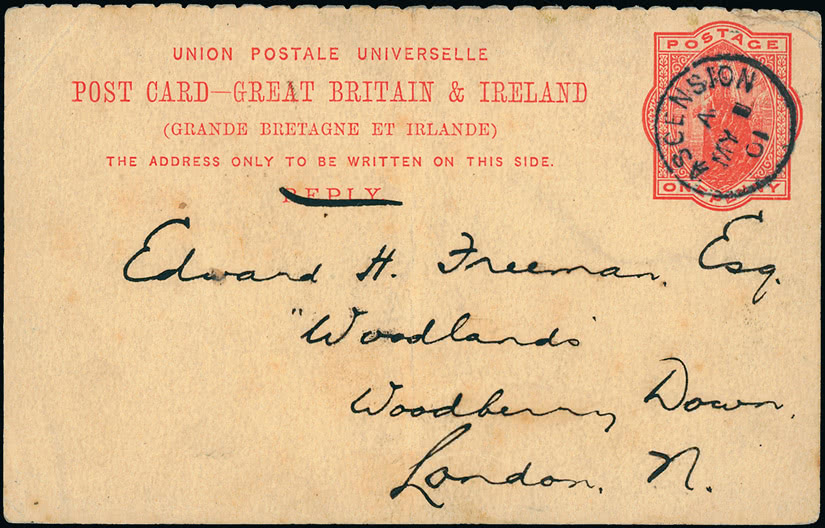 UNION POSTALE UNIVERSELLE
POST CARD—GREAT BRITAIN & IRELAND
(GRANDE BRETAGNE ET IRLANDE)
THE ADDRESS ONLY TO BE WRITTEN ON THIS SIDE.
REPLY
POSTAGE
ONE PENNY
ASCENSION
A
MY
01
Edward H. Freeman, Esq.
"Woodlands"
Woodberry Down,
London, N.